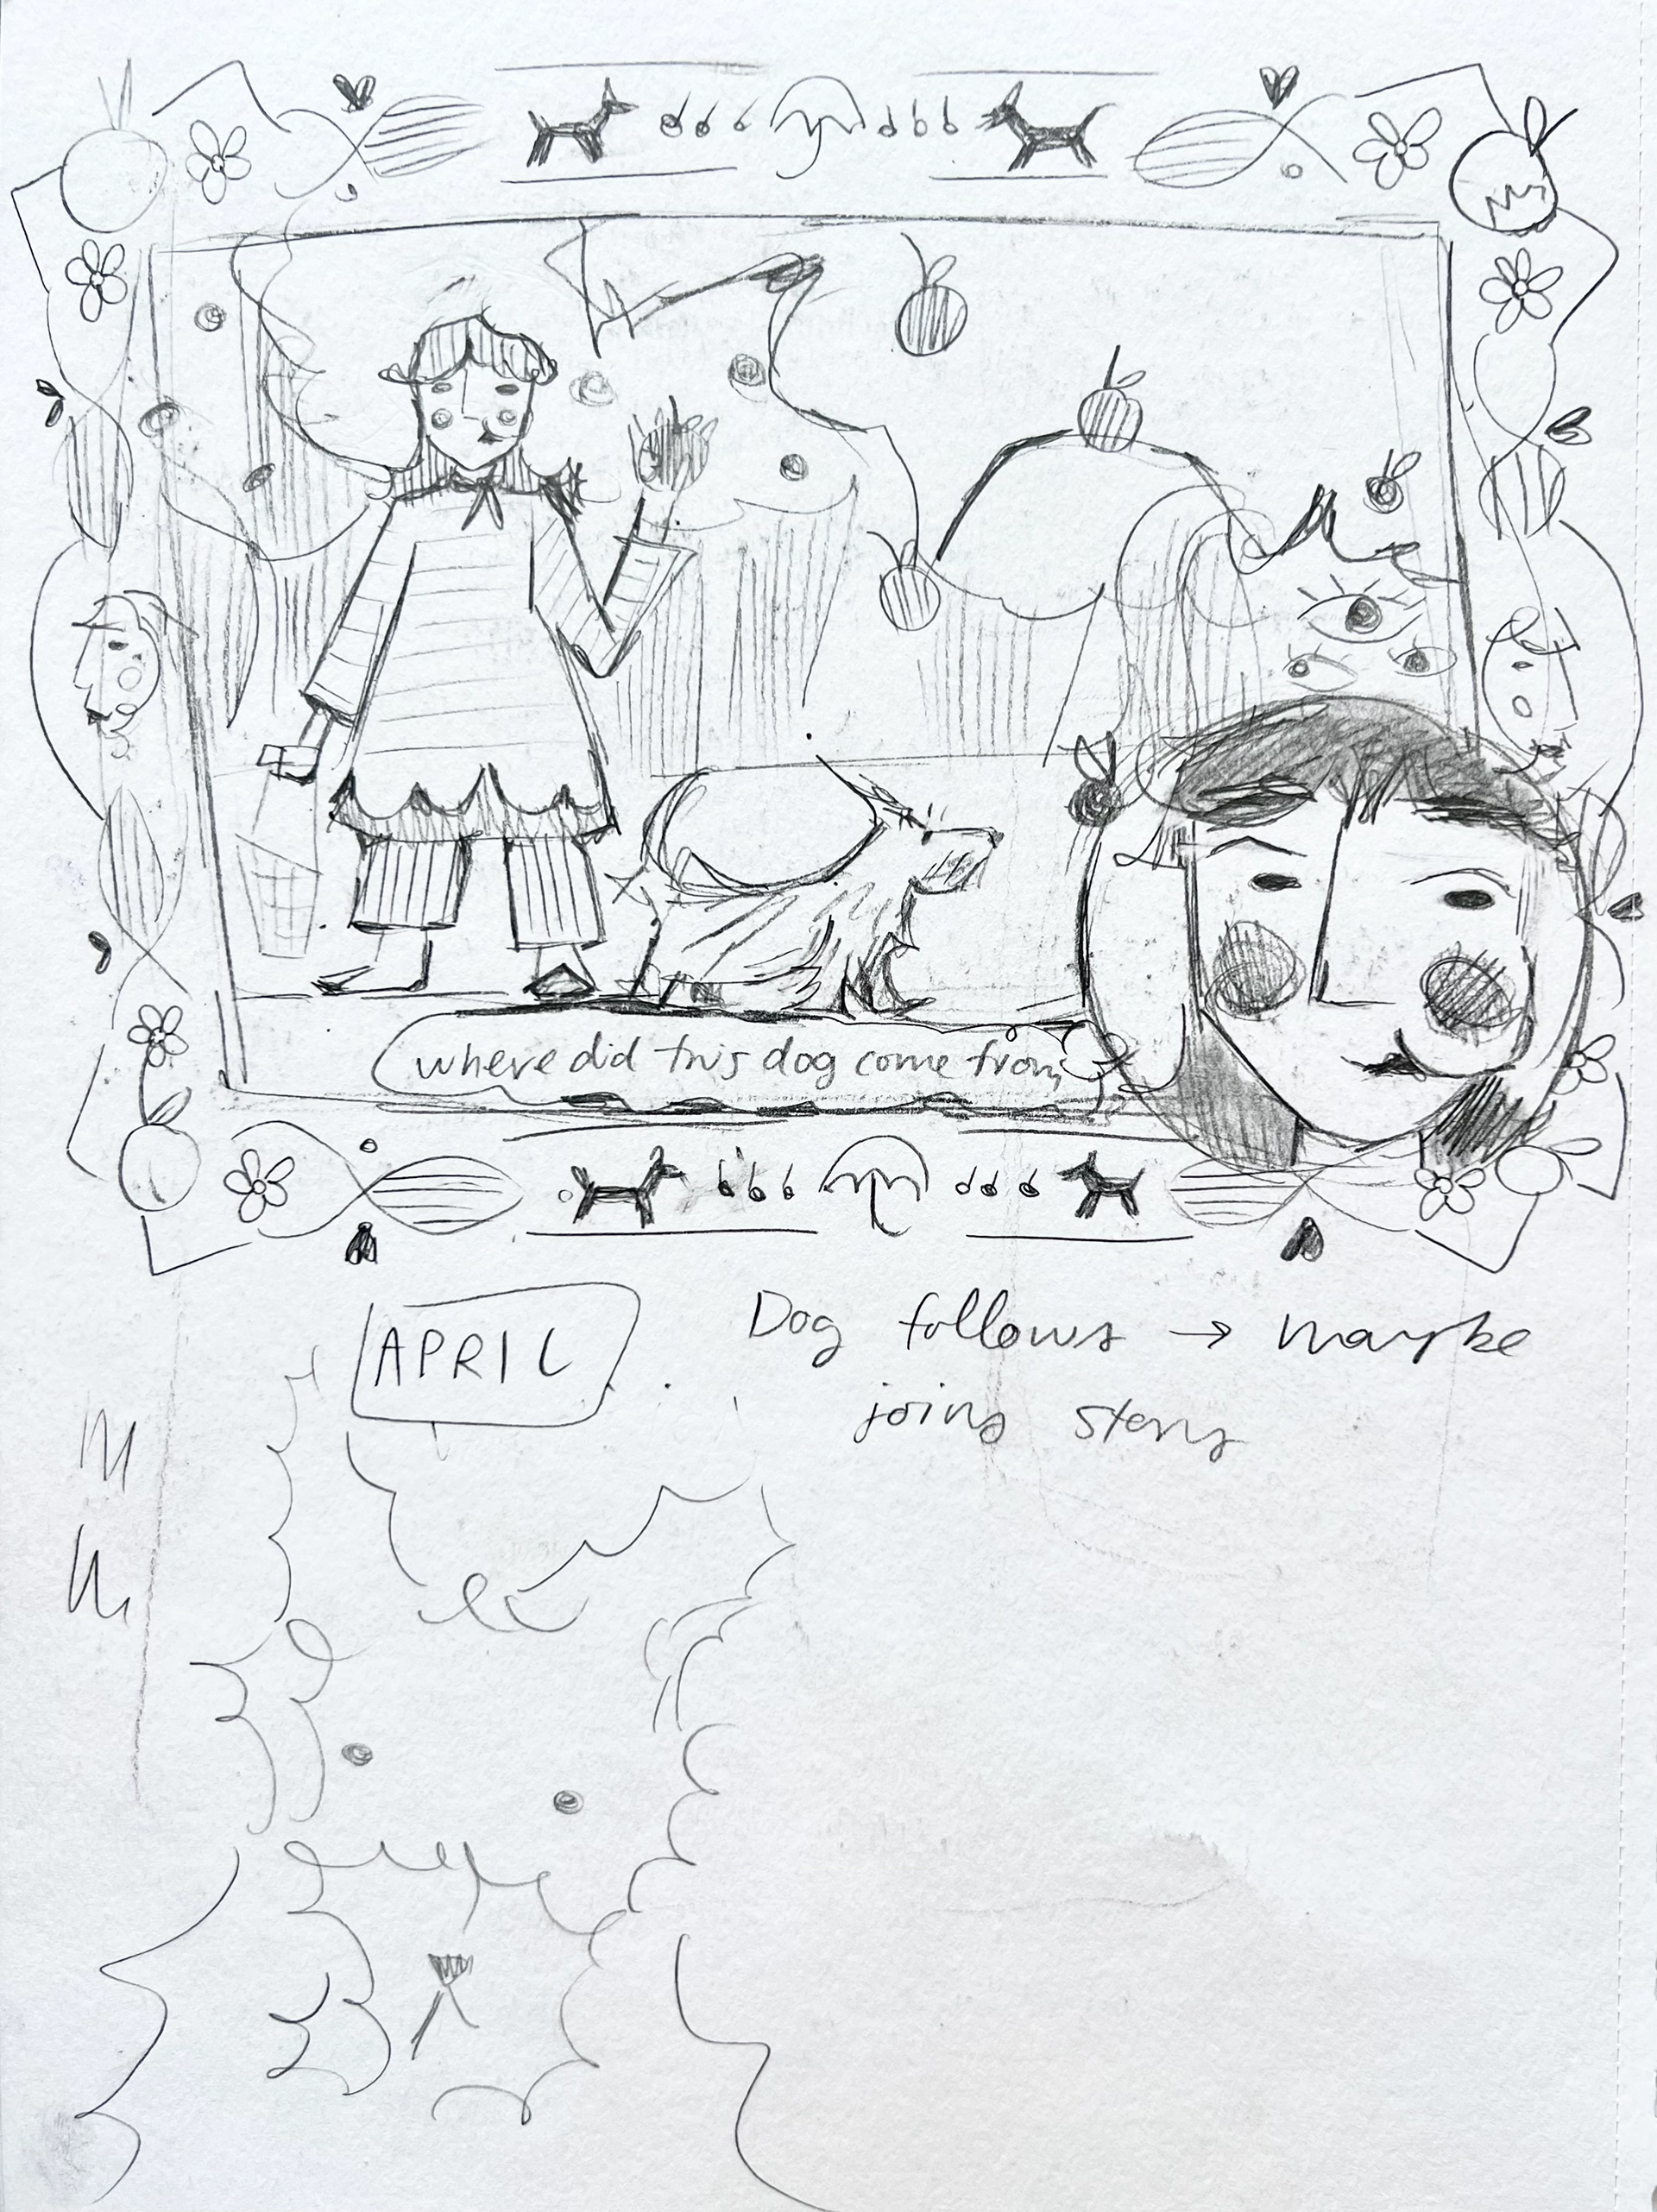 where did this dog come from
APRIL
Dog follows → maybe
joins story